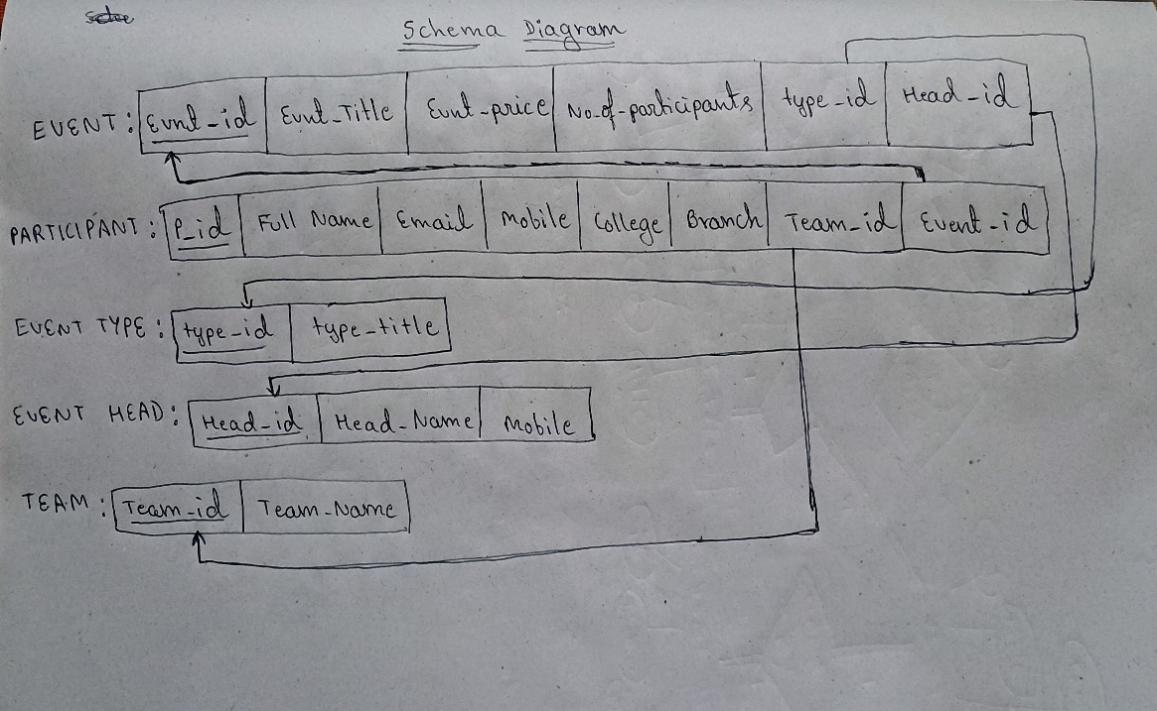 Schema Diagram
EVENT: Evnt_id Evnt_Title Evnt_price No_of_participants type_id Head_id
PARTICIPANT: P_id Full Name Email Mobile College Branch Team_id Event_id
EVENT TYPE: type_id type_title
EVENT HEAD: Head_id Head_Name Mobile
TEAM: Team_id Team_Name